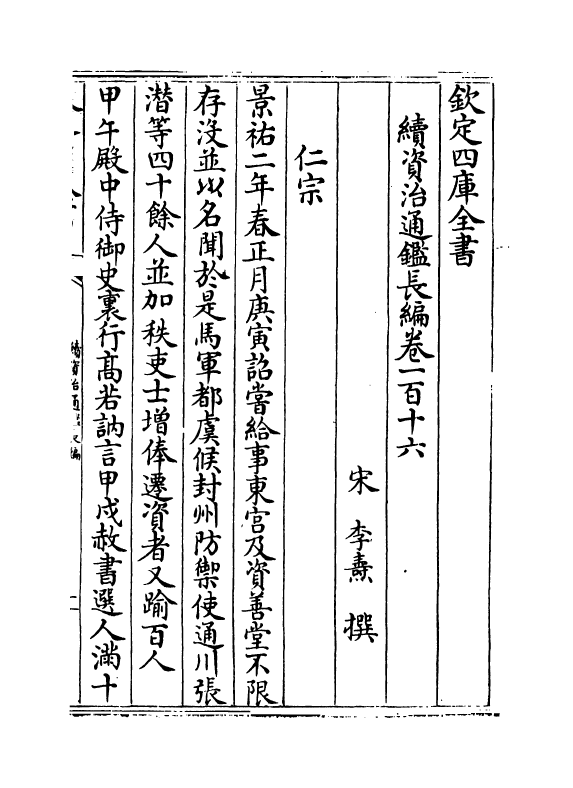 欽定四庫全書
續資治通鑑長編卷一百十六
宋 李燾 撰
仁宗
景祐二年春正月庚寅詔嘗給事東宫及資善堂不限
存没並以名聞於是馬軍都虞候封州防禦使通川張
潜等四十餘人並加秩吏士增俸遷資者又踰百人
甲午殿中侍御史裏行髙若訥言甲戍赦書選人滿十
續資治通鑑長編